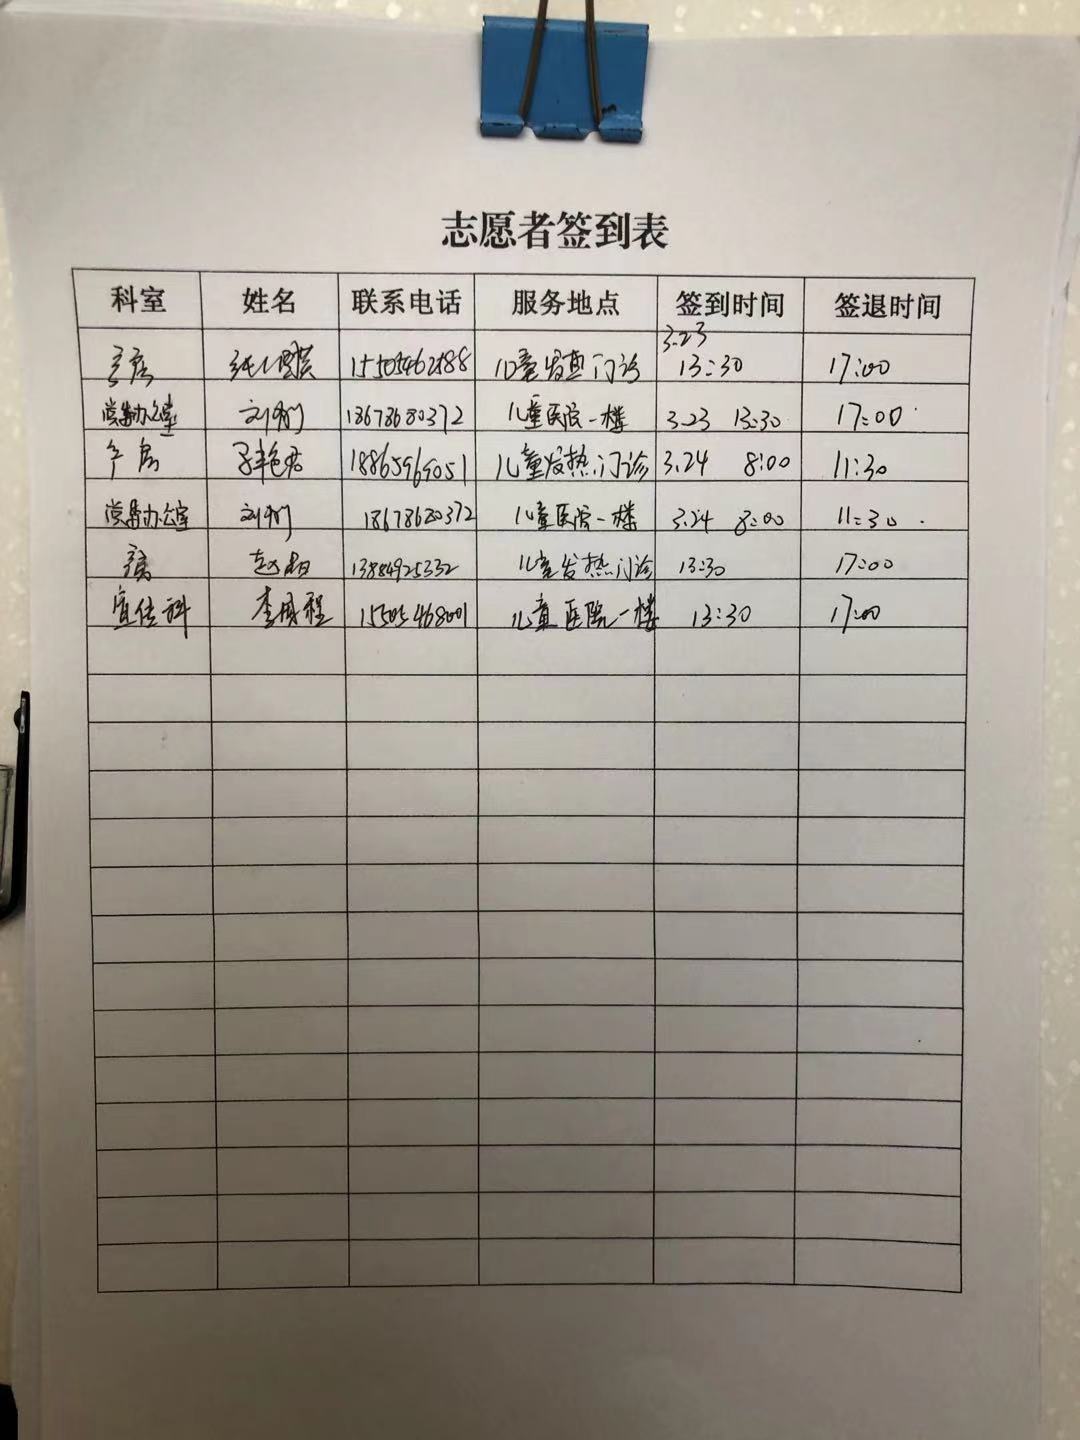 志愿者签到表
科室 姓名 联系电话 服务地点 签到时间 签退时间
3.23
产房 儿童发热门诊 13:30 17:00
党导办公室 刘 18678680372 儿童医院一楼 3.23 13:30 17:00
产房 18865969051 儿童发热门诊 3.24 8:00 11:30
党导办公室 刘 18678680372 儿童医院一楼 3.24 8:00 11:30
产房 13884925332 儿童发热门诊 13:30 17:00
宣传科 李 程 15505468001 儿童医院一楼 13:30 17:00